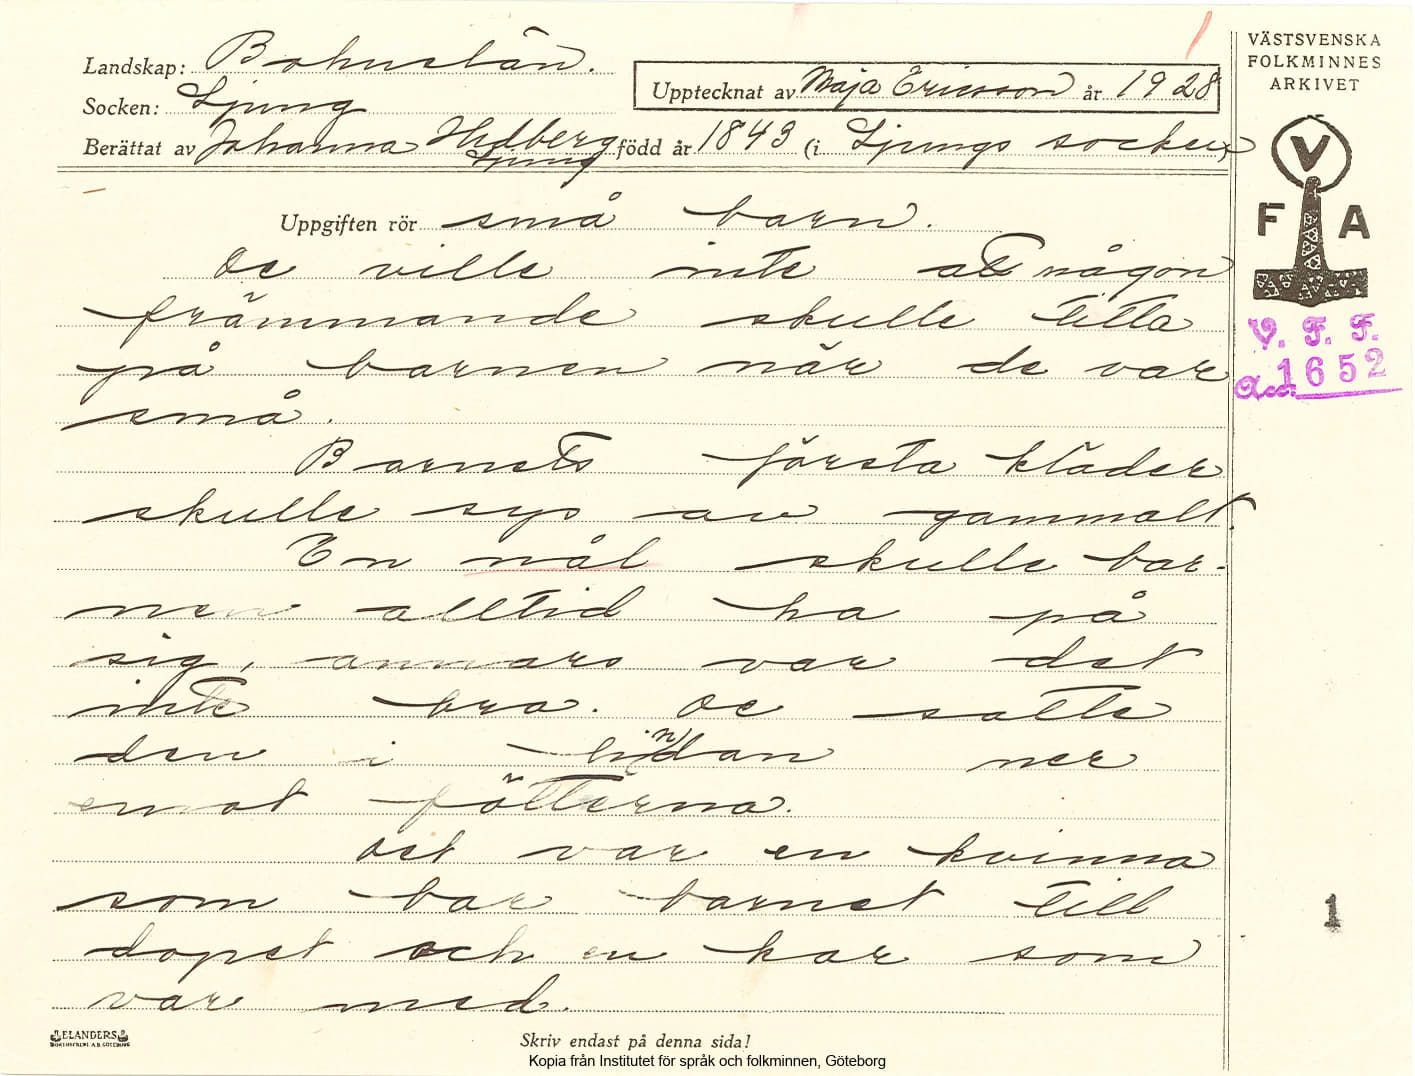 Landskap: Bohuslän.
Socken: Ljung
Upptecknat av Maja Ericsson år 1928
Berättat av Johanna Hedberg Ljung född år 1843 (i Ljungs socken)
VÄSTSVENSKA
FOLKMINNES
ARKIVET
V
F A
V. F. F.
Acc. 1652
Uppgiften rör små barn.
De ville inte att någon
främmande skulle titta
på barnen när de var
små.
Barnets första kläder
skulle sys av gammalt.
En nål skulle bar-
nen alltid ha på
sig, annars var det
inte bra. De satte
den i lindan ner
emot fötterna.
Det var en kvinna
som bar barnet till
dopet och en kar som
var med.
1
ELANDERS
BOKTRYCKERI A.B. GÖTEBORG
Skriv endast på denna sida!
Kopia från Institutet för språk och folkminnen, Göteborg